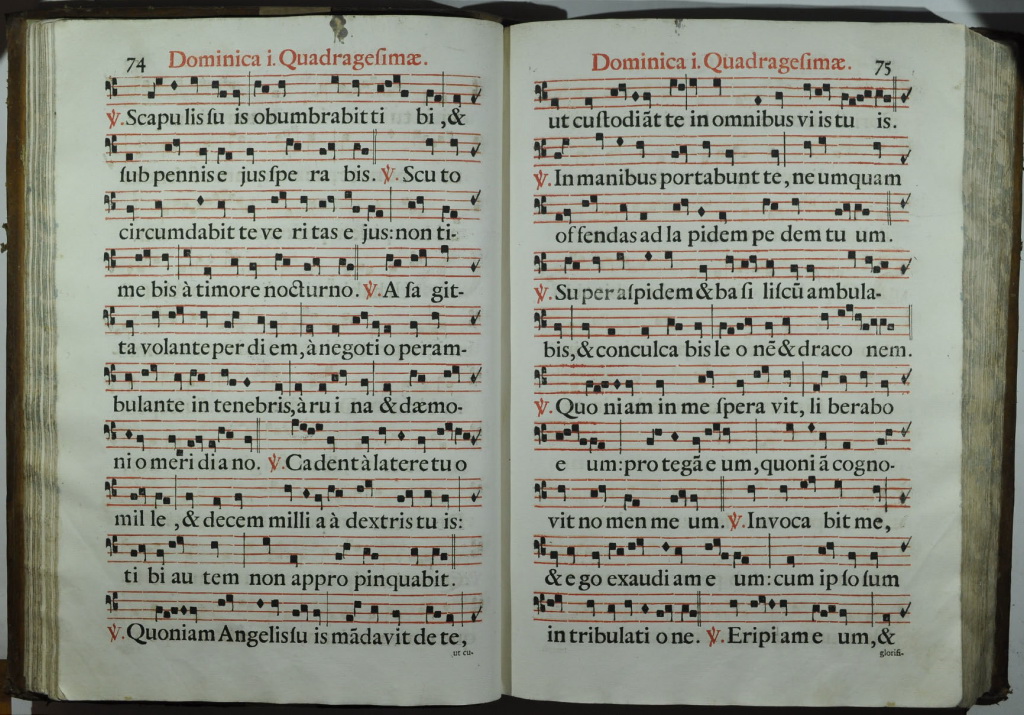 74 Dominica i. Quadrageſimæ.
℣. Scapu lis ſu is obumbrabit ti bi, &
ſub pennis e jus ſpe ra bis. ℣. Scu to
circumdabit te ve ri tas e jus: non ti-
me bis à timore nocturno. ℣. A ſa git-
ta volante per di em, à negoti o peram-
bulante in tenebris, à ru i na & dæmo-
ni o meri di a no. ℣. Ca dent à latere tu o
mil le, & decem milli a à dextris tu is:
ti bi au tem non appro pinquabit.
℣. Quoniam Angelis ſu is mādavit de te,
ut cu-
Dominica i. Quadrageſimæ. 75
ut cu ſtodi āt te in omnibus vi is tu is.
℣. In manibus portabunt te, ne umquam
of fendas ad la pidem pe dem tu um.
℣. Su per aſpidem & ba ſi liſcū ambula-
bis, & conculca bis le o nē & draco nem.
℣. Quo niam in me ſpera vit, li berabo
e um: pro tegā e um, quoni ā cogno-
vit no men me um. ℣. Invoca bit me,
& e go exaudi am e um: cum ip ſo ſum
in tribulati o ne. ℣. Eripi am e um, &
glorifi-